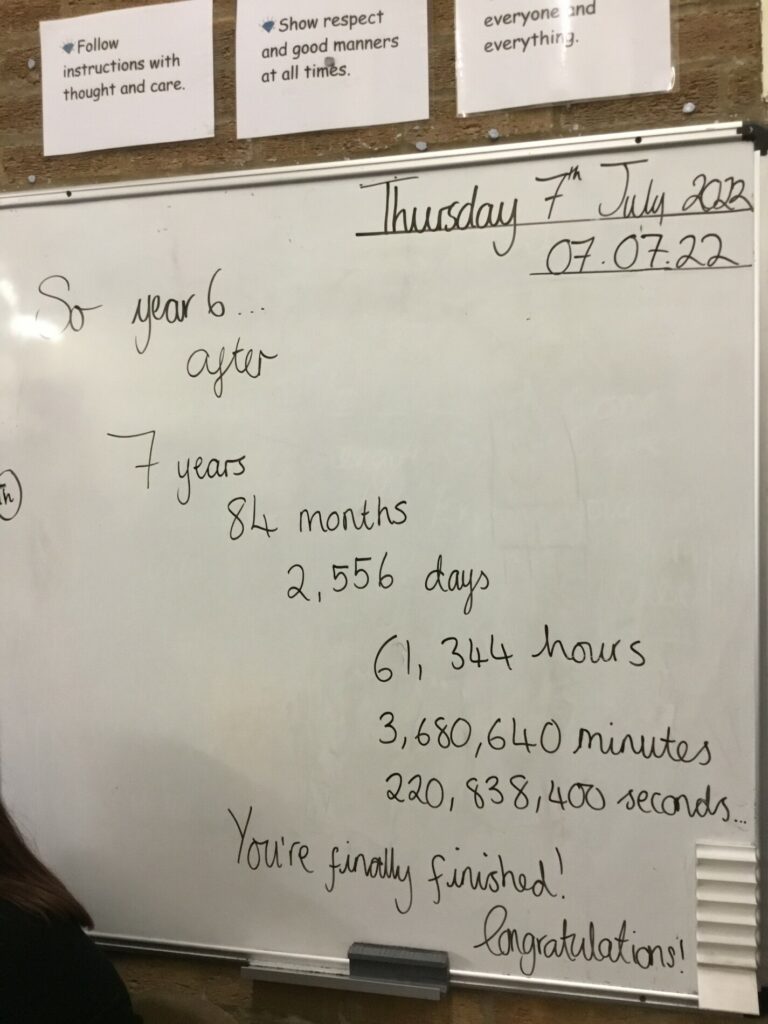 Follow
instructions with
thought and care.
Show respect
and good manners
at all times.
everyone and
everything.
Thursday 7th July 2022
07.07.22
So year 6...
after
7 years
84 months
2,556 days
61,344 hours
3,680,640 minutes
220,838,400 seconds...
You're finally finished!
Congratulations!
Th